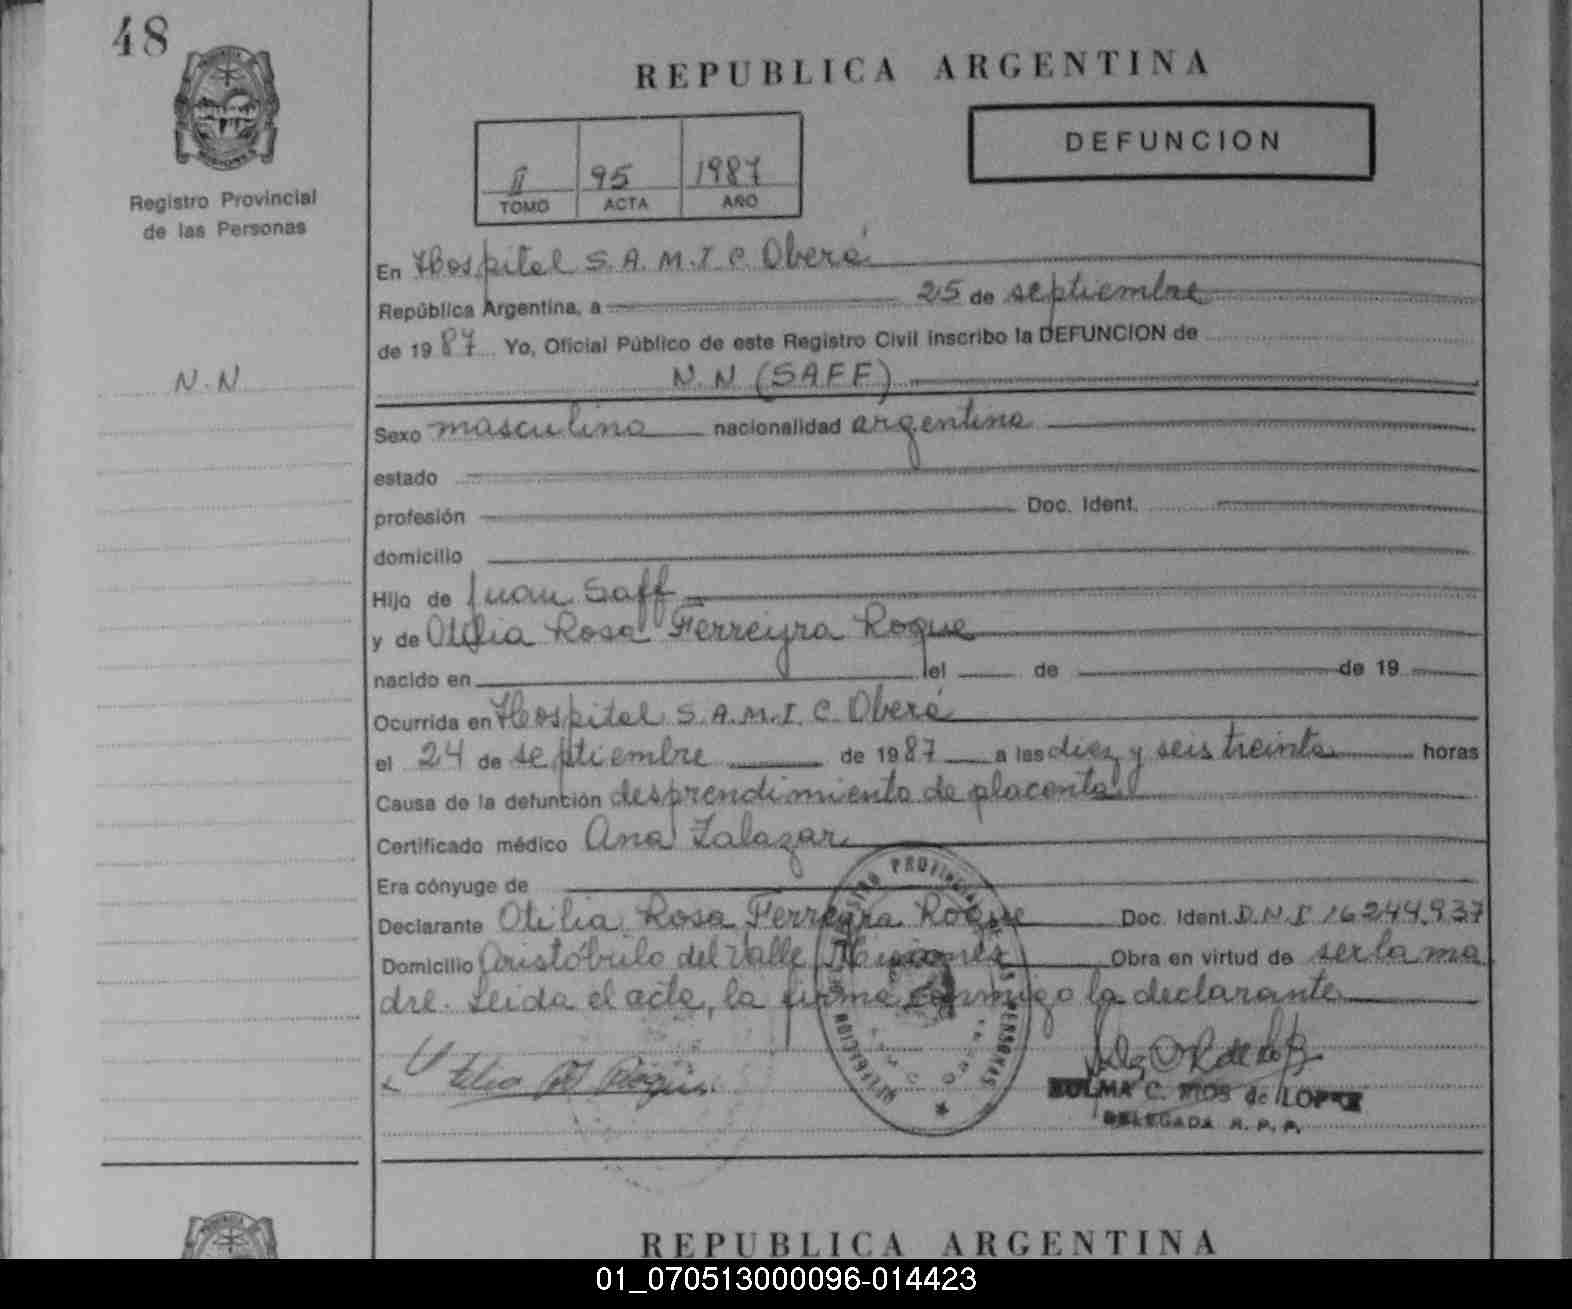 48
REPUBLICA ARGENTINA
DEFUNCION
II 95 1987
TOMO ACTA AÑO
Registro Provincial
de las Personas
En Hospital S.A.M.I.C. Oberá
República Argentina, a 25 de septiembre
de 1987 Yo, Oficial Público de este Registro Civil inscribo la DEFUNCION de
N.N
N.N (SAFF)
Sexo masculino nacionalidad argentina
estado
profesión Doc. Ident.
domicilio
Hijo de Juan Saff
y de Otilia Rosa Ferreyra Roque
nacido en el de de 19
Ocurrida en Hospital S.A.M.I.C. Oberá
el 24 de septiembre de 1987 a las diez y seis treinta horas
Causa de la defunción desprendimiento de placenta
Certificado médico Ana Zalazar
Era cónyuge de
Declarante Otilia Rosa Ferreyra Roque Doc. Ident. D.N.I 16244.937
Domicilio Aristóbulo del Valle Misiones Obra en virtud de ser la ma
dre. Leida el acta, la firma conmigo la declarante
ZULMA C. RIOS de LOPEZ
DELEGADA R. P. P.
REPUBLICA ARGENTINA
01_070513000096-014423